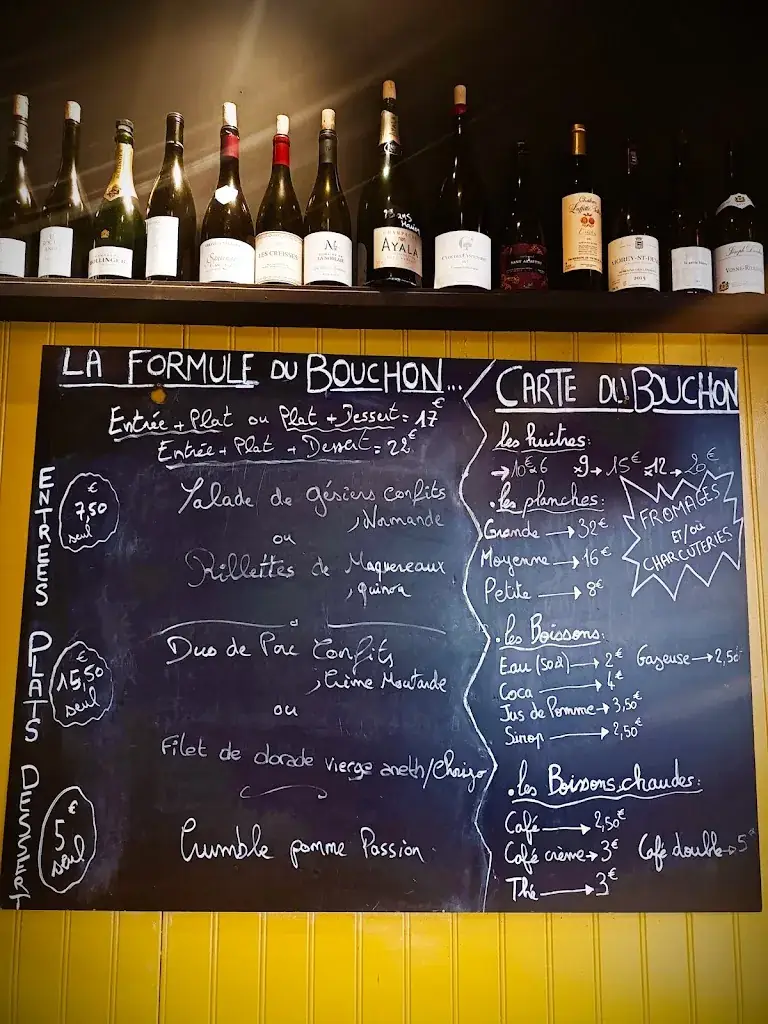 BOLLINGER
LES CREISSES
73.24$
AYALA
SAINT AMOUR
MOREY-ST-DENIS
LA FORMULE DU BOUCHON...
Entrée + Plat ou Plat + Dessert = 17€
Entrée + Plat + Dessert = 22€
ENTREES
7,50€
seul
Salade de gésiers confits
, Normande
ou
Rillettes de Maquereaux
, quinoa
PLATS
15,50€
seul
Duo de Porc Confits
, Crème Moutarde
ou
Filet de dorade vierge aneth/Chorizo
DESSERT
5€
seul
Crumble pomme Passion
CARTE DU BOUCHON
les huitres:
→10€ x6 x9→15€ x12→20€
.les planches:
Grande → 32€
Moyenne → 16€
Petite → 8€
FROMAGES
ET/OU
CHARCUTERIES
.les Boissons:
Eau (50cl) → 2€ Gazeuse → 2,50€
Coca → 4€
Jus de Pomme → 3,50€
Sirop → 2,50€
.les Boissons chaudes:
Café → 2,50€
Café crème → 3€ Café double → 5€
Thé → 3€